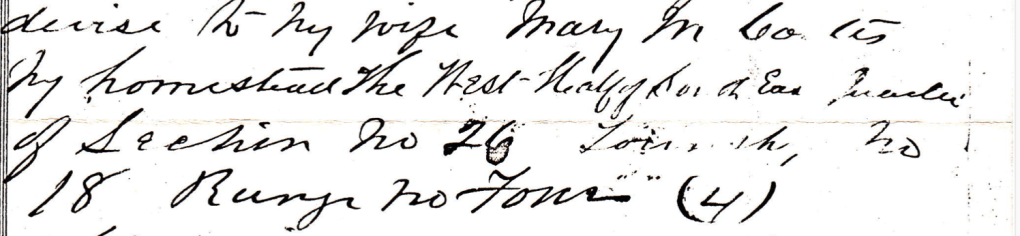 devise to my wife Mary M
my homestead the West Half of Quarter
of Section No 26 No
18 Range No Four (4)